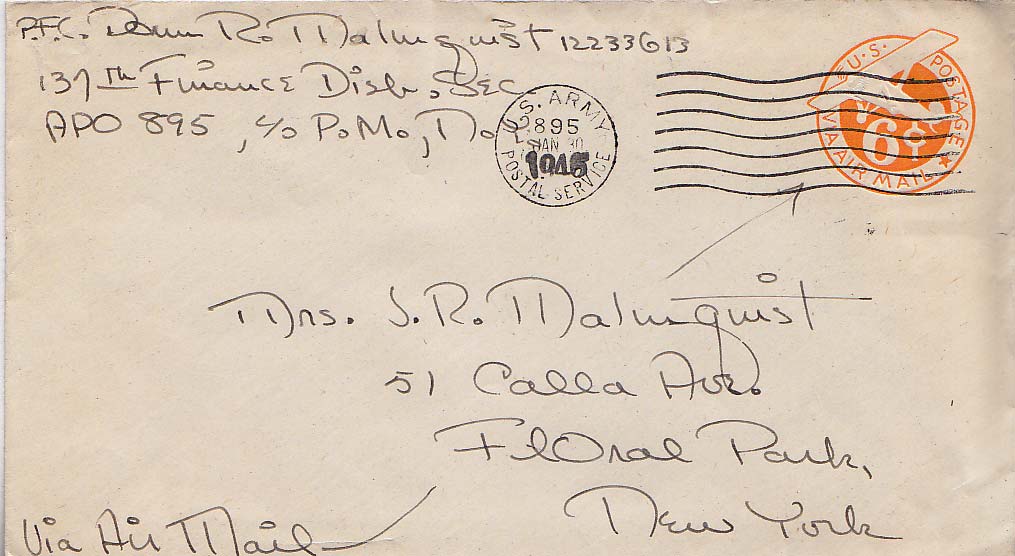 P.F.C. Dann R. Malmquist 12233613
137th Finance Disb. Sec.
APO 895, c/o P.M., N.
U.S. ARMY
895
JAN 30
1945
POSTAL SERVICE
U.S. POSTAGE
6¢
VIA AIR MAIL
Mrs. J. R. Malmquist
51 Calla Ave.
Floral Park,
New York
Via Air Mail